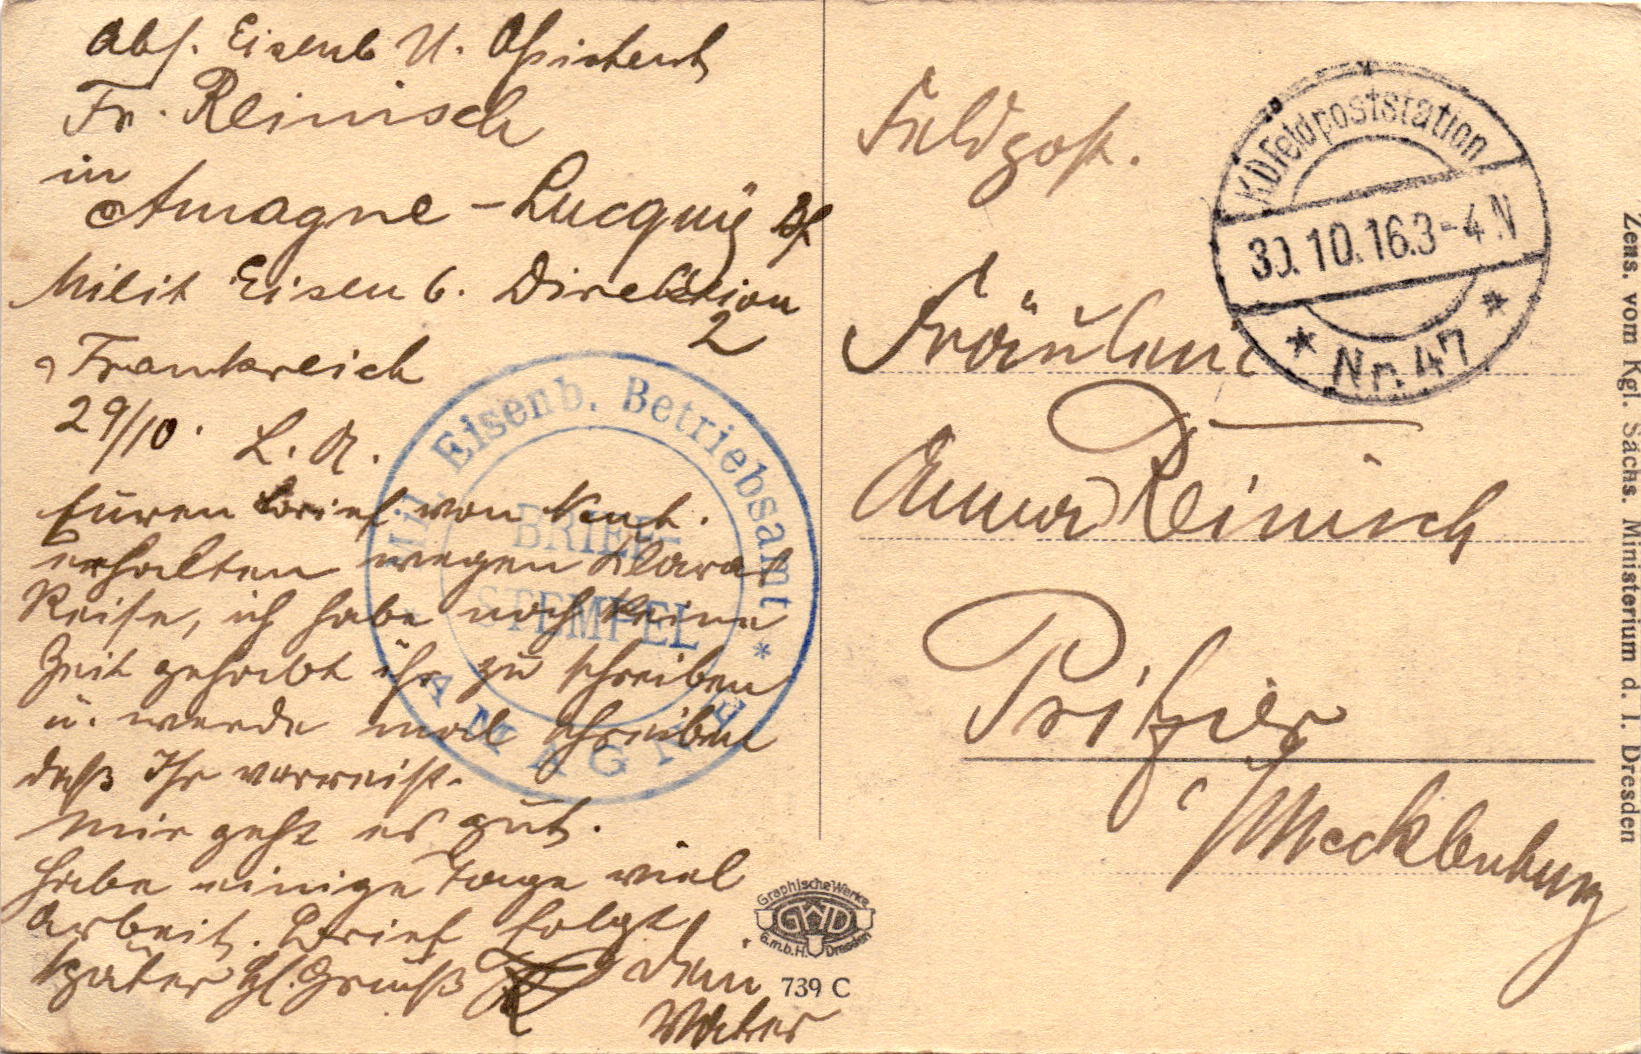 Abs. Eisenb U. Assistent
Fr. Reinisch
in
Amagne-Lucquÿ Bf
Milit Eisenb. Direktion
2
Frankreich
29/10. L. A.
Euren Brief von
erhalten wegen Klaras
Reise, ich habe noch keine
Zeit gehabt ihr zu schreiben
u. werde mal schreiben
daß Ihr verreist.
Mir geht es gut.
Habe einige Tage viel
Arbeit. Brief folgt
später Hl. Gruß
Dein
Vater
Mil. Eisenb. Betriebsamt
BRIEF-
STEMPEL
* AMAGNE *
Feldpost.
KD Feldpoststation
30.10.16.3-4 N
* Nr. 47. *
Fräulein
Anna Reinisch
Pritzier
i/Mecklenburg
Graphische Werke
GWD
G.m.b.H. Dresden
739 C
Zens. vom Kgl. Sächs. Ministerium d. I. Dresden